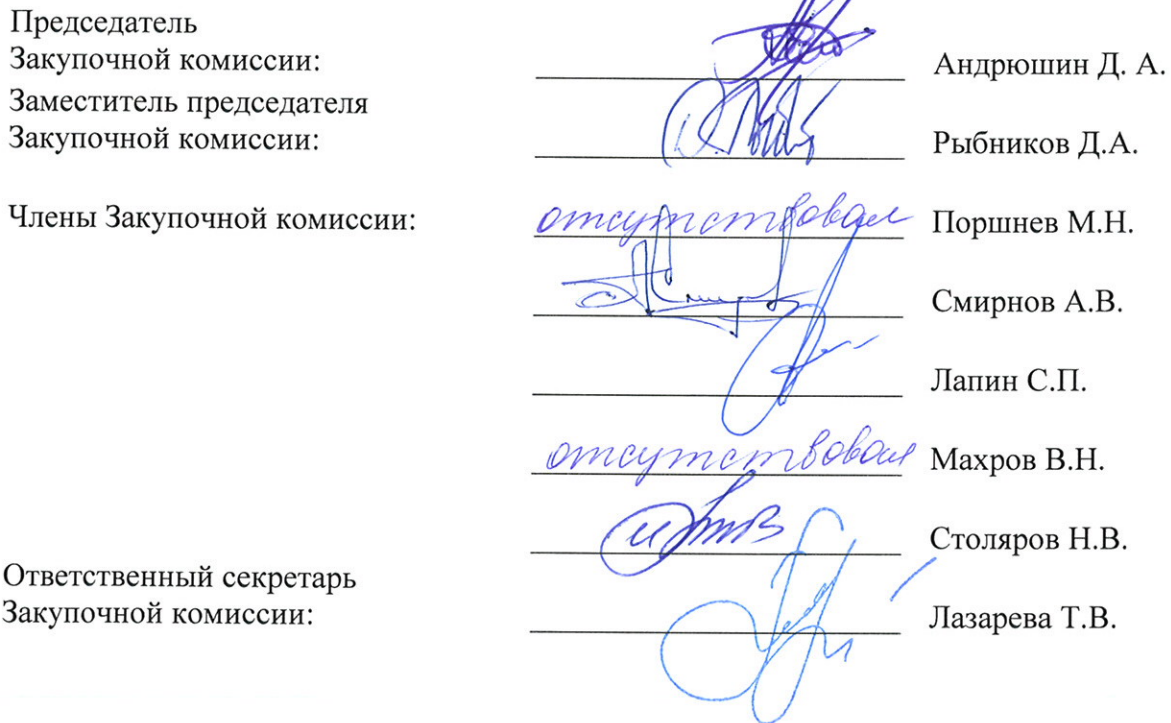 Председатель
Закупочной комиссии: Андрюшин Д. А.
Заместитель председателя
Закупочной комиссии: Рыбников Д.А.
Члены Закупочной комиссии: отсутствовал Поршнев М.Н.
Смирнов А.В.
Лапин С.П.
отсутствовал Махров В.Н.
Столяров Н.В.
Ответственный секретарь
Закупочной комиссии: Лазарева Т.В.